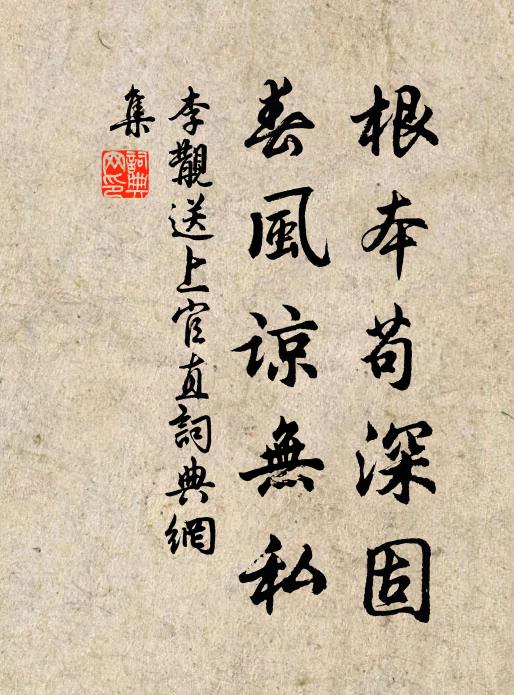 根本苟深固
春風諒無私
李觀送上官直詞典網
集
詞典
网印